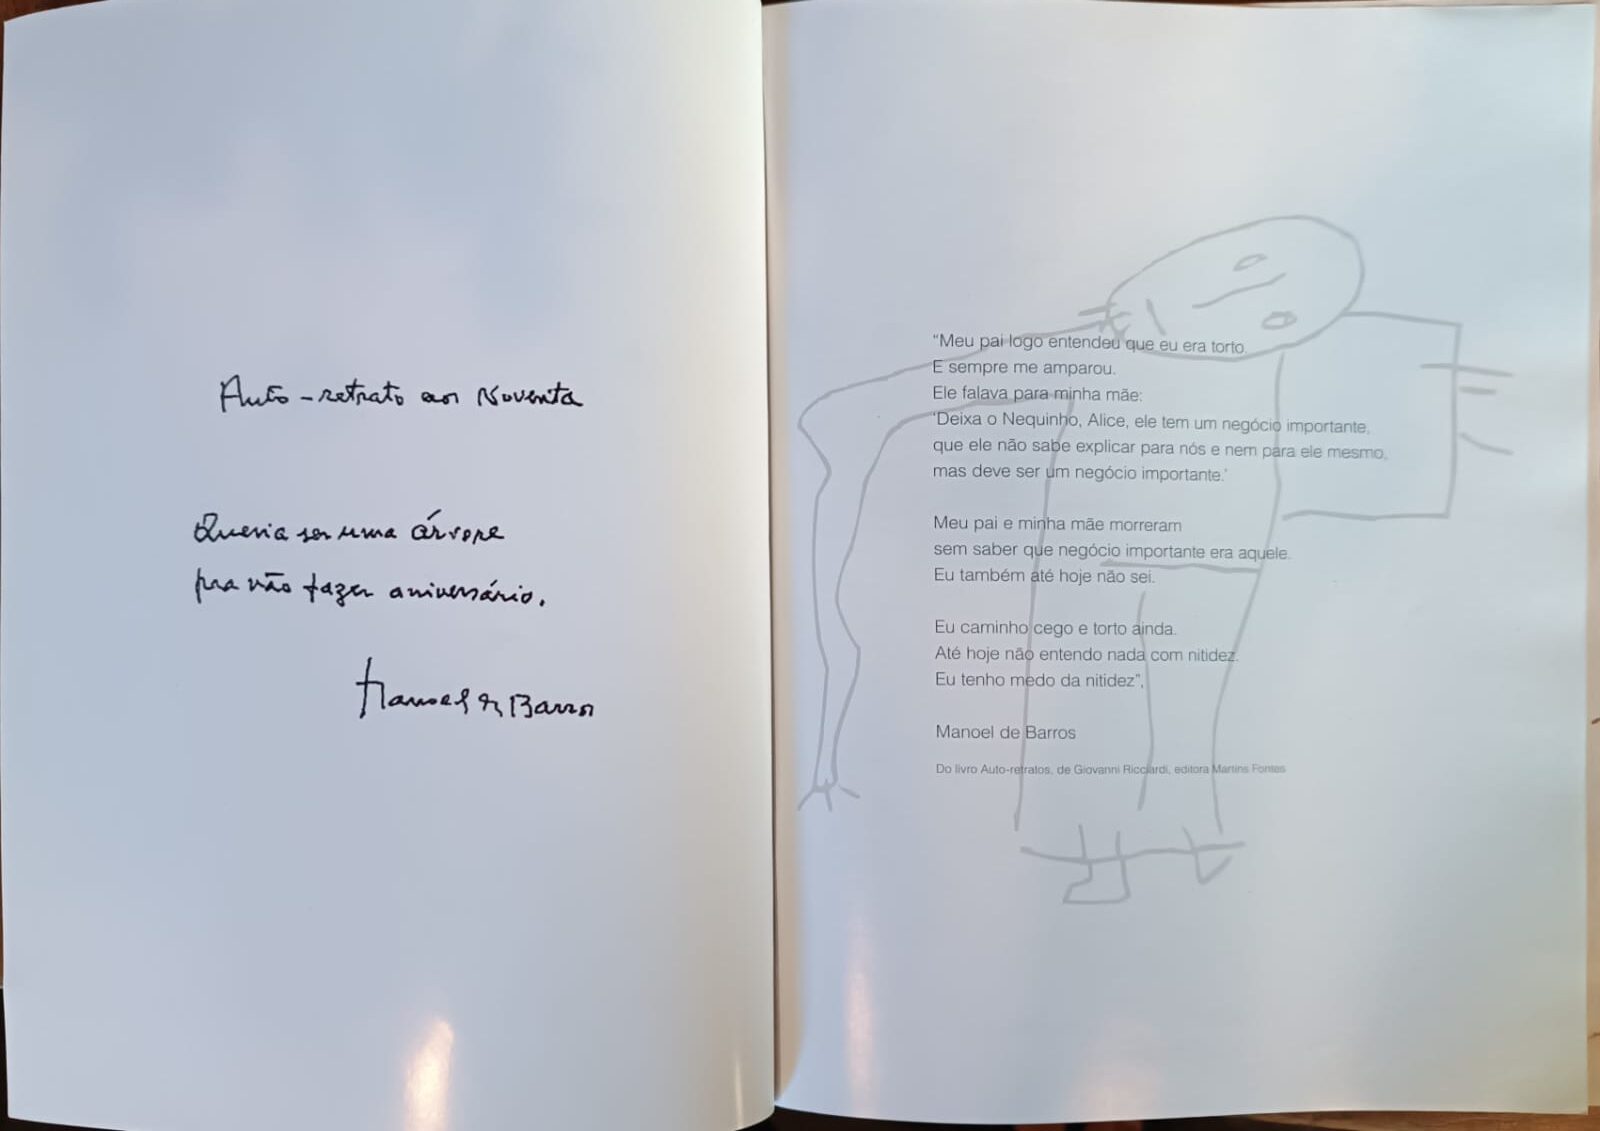 Auto-retrato aos Noventa
Queria ser uma árvore
pra não fazer aniversário.
Manoel de Barros
"Meu pai logo entendeu que eu era torto.
E sempre me amparou.
Ele falava para minha mãe:
'Deixa o Nequinho, Alice, ele tem um negócio importante,
que ele não sabe explicar para nós e nem para ele mesmo,
mas deve ser um negócio importante.'
Meu pai e minha mãe morreram
sem saber que negócio importante era aquele.
Eu também até hoje não sei.
Eu caminho cego e torto ainda.
Até hoje não entendo nada com nitidez.
Eu tenho medo da nitidez",
Manoel de Barros
Do livro Auto-retratos, de Giovanni Ricciardi, editora Martins Fontes